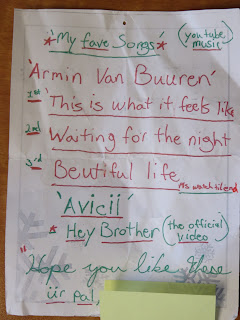 *My fave Songs* (youtube music)
'Armin Van Buuren'
1st 'This is what it feels like
2nd Waiting for the night
3rd Beutiful life
Pls watch til end
'Avicii'
* Hey Brother (the official video)
"Hope you like these
ür pal